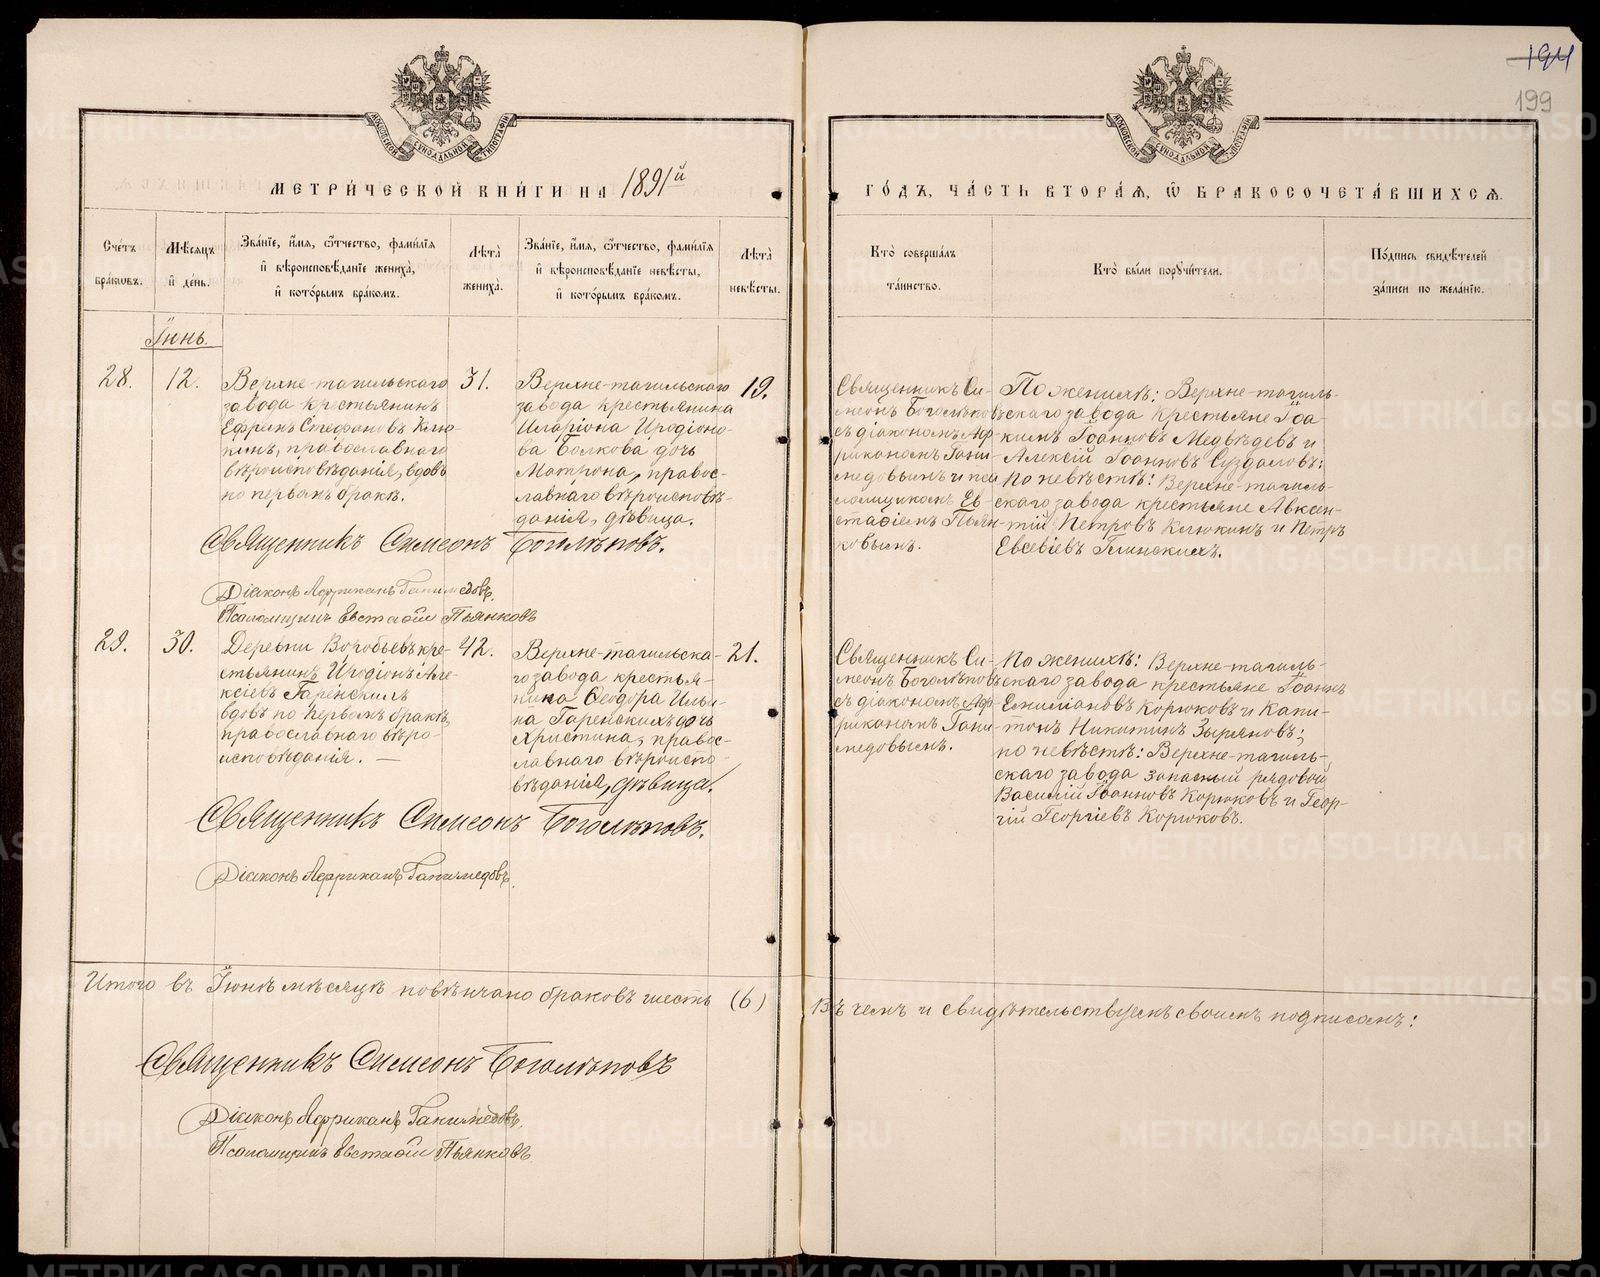 194
199
МОСКОВСКОЙ СѴНОДАЛЬНОЙ ТИПОГРАФІИ
МОСКОВСКОЙ СѴНОДАЛЬНОЙ ТИПОГРАФІИ
МЕТРИ́ЧЕСКОЙ КНИ́ГИ НА 1891й
ГО́ДЪ, ЧА́СТЬ ВТОРА́Ѧ, Ѡ҆ БРАКОСОЧЕТА́ВШИХСѦ.
Сче́тъ бра́кѡвъ.
Мѣ́сѧцъ и҆ де́нь.
Зва́нїе, и҆́мѧ, ѻ҆́тчество, фами́лїѧ и҆ вѣроисповѣ́данїе жениха̀, и҆ кото́рымъ бра́комъ.
Лѣ́та жениха̀.
Зва́нїе, и҆́мѧ, ѻ҆́тчество, фами́лїѧ и҆ вѣроисповѣ́данїе невѣ́сты, и҆ кото́рымъ бра́комъ.
Лѣ́та невѣ́сты.
Кто̀ соверша́лъ та́инство.
Кто̀ бы́ли порꙋчи́тели.
По́дпись свидѣ́телей за́писи по жела́нїю.
Іюнь.
28.
12.
Верхне-тагильскаго
завода крестьянинъ
Ефремъ Стефановъ Клю-
кинъ, православнаго
вѣроисповѣданія, вдовъ
по первомъ бракѣ.
31.
Верхне-тагильскаго
завода крестьянина
Иларіона Иродіоно-
ва Волкова дочь
Матрона, правос-
лавнаго вѣроисповѣ-
данія, дѣвица.
19.
Священникъ Си-
меонъ Боголѣповъ
съ діакономъ Аф-
риканомъ Гани-
медовымъ и пса-
ломщикомъ Ев-
стафіемъ Пьян-
ковымъ.
По женихѣ: Верхне-тагиль-
скаго завода крестьяне Іоа-
кимъ Іоанновъ Медвѣдевъ и
Алексій Іоанновъ Суздаловъ;
по невѣстѣ: Верхне-тагиль-
скаго завода крестьяне Авксен-
тій Петровъ Клюкинъ и Петръ
Евсевіевъ Глинскихъ.
Священникъ Симеонъ Боголѣповъ.
Діаконъ Африканъ Ганимедовъ.
Псаломщикъ Евстафій Пьянковъ
29.
30.
Деревни Воробьевъ кре-
стьянинъ Иродіонъ Але-
ксіевъ Гаренскихъ
вдовъ по первомъ бракѣ,
православнаго вѣро-
исповѣданія. —
42.
Верхне-тагильска-
го завода крестья-
нина Ѳеодора Ильи-
на Гаренскихъ дочь
Христина, правос-
лавнаго вѣроиспо-
вѣданія, дѣвица.
21.
Священникъ Си-
меонъ Боголѣповъ
съ діакономъ Аф-
риканомъ Гани-
медовымъ.
По женихѣ: Верхне-тагиль-
скаго завода крестьяне Іоаннъ
Емиліановъ Корюковъ и Капи-
тонъ Никитинъ Зыряновъ;
по невѣстѣ: Верхне-тагиль-
скаго завода запасный рядовой
Василій Іоанновъ Корюковъ и Геор-
гій Георгіевъ Корюковъ.
Священникъ Симеонъ Боголѣповъ.
Діаконъ Африканъ Ганимедовъ.
Итого въ Іюнѣ мѣсяцѣ повѣнчано браковъ шесть (6)
Въ чемъ и свидѣтельствуемъ своимъ подписомъ:
Священникъ Симеонъ Боголѣповъ
Діаконъ Африканъ Ганимедовъ.
Псаломщикъ Евстафій Пьянковъ
METRIKI.GASO-URAL.RU